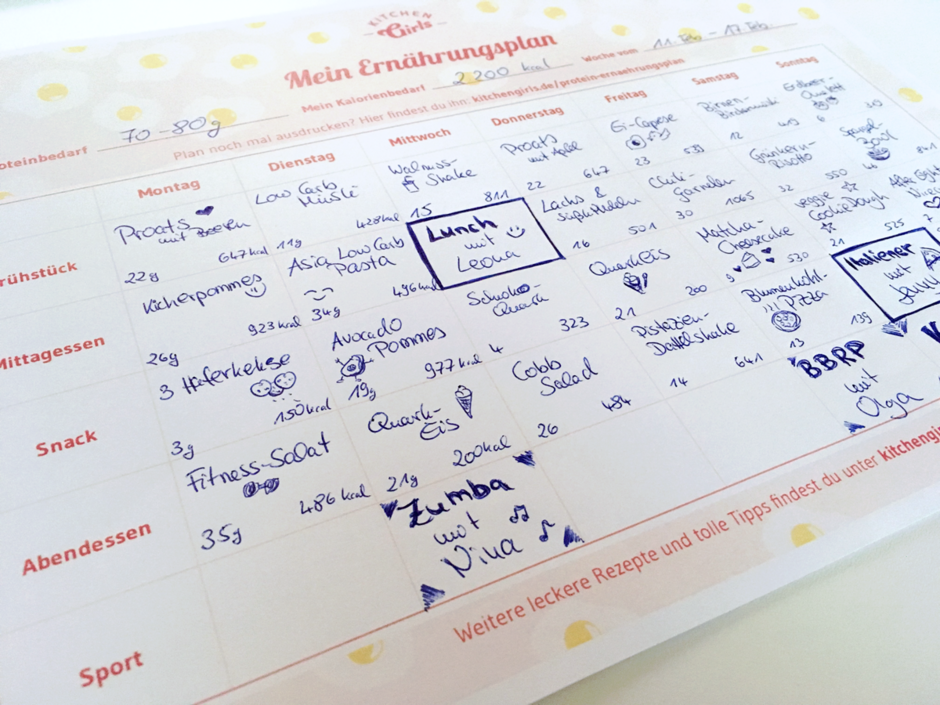 KITCHEN
Girls
Mein Ernährungsplan
70-80g
Mein Kalorienbedarf 2 200 kcal
Woche vom 11. Feb. - 17. Feb.
Plan noch mal ausdrucken? Hier findest du ihn: kitchengirls.de/protein-ernaehrungsplan
Montag Dienstag Mittwoch Donnerstag Freitag Samstag Sonntag
Proats
mit Beeren
22g 647kcal
Low Carb
Müsli
11g 428kcal
Walnuss-
Shake
15 811
Proats
mit Apfel
22 647
Ei-Caprese
23
Birnen-
12
Erdbeer-
6
Mittagessen
Kicherpommes
26g 923kcal
Asia Low Carb
Pasta
34g 496kcal
Lunch
mit
Leona
Lachs &
16 501
Garnelen
30 1065
Grünkern-
Risotto
32 550
Snack
3 Haferkekse
3g 150kcal
Avocado
Pommes
19g 977kcal
Schoko-
Quark
4 323
Quarkeis
21 200
Matcha-
Cheesecake
9 530
Veggie
Cookie Dough
21 525
After Eight
Abendessen
Fitness-Salat
35g 486kcal
Quark-
Eis
21g 200kcal
Cobb
Salad
26 484
Pistazien-
Dattelshake
14 641
Blumenkohl-
Pizza
13 139
Italiener
mit
Sport
Zumba
mit
Nina
BBRP
mit
Olga
Weitere leckere Rezepte und tolle Tipps findest du unter